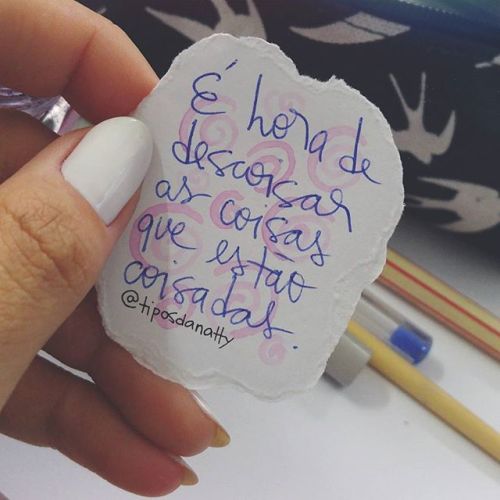 É hora de
descoisar
as coisas
que estão
coisadas.
@tiposdanatty